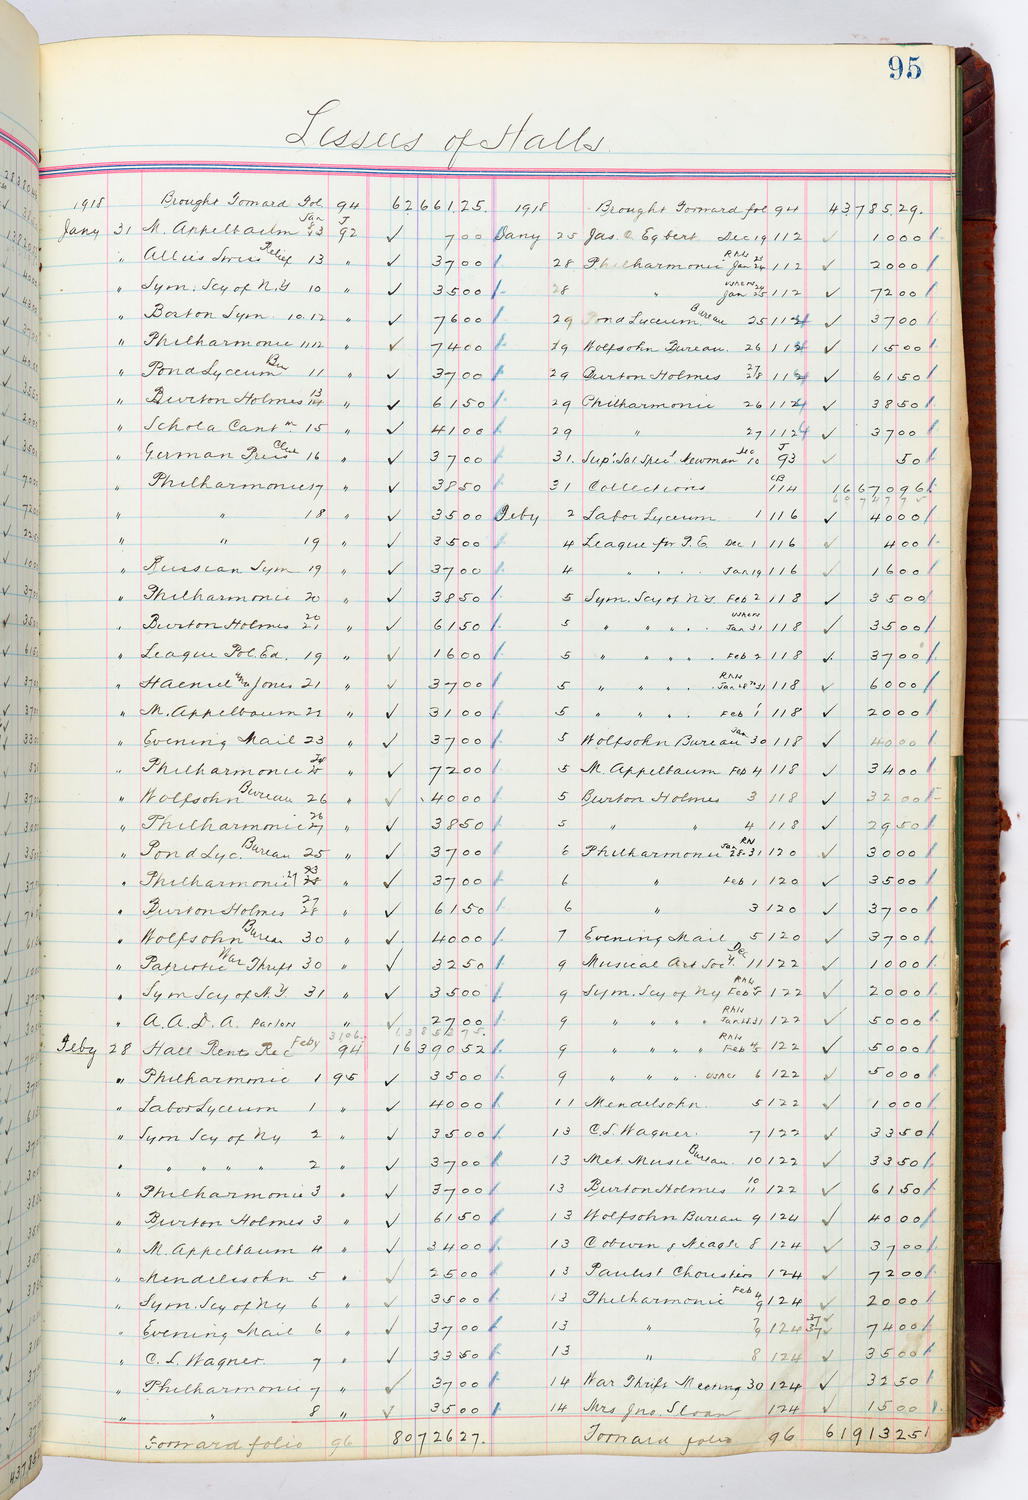 95
Lessees of Halls
1918 Brought Forward Fol. 94 62661.25.
Jany 31 M. Appelbaum Jan 13 J 92 ✓ 700
" Allies Swiss Relief 13 " ✓ 3700
" Sym. Scy of N.Y 10 " ✓ 3500
" Boston Sym. 10.12 " ✓ 7600
" Philharmonic 11 12 " ✓ 7400
" Pond Lyceum Bu 11 " ✓ 3700
" Burton Holmes 13 14 " ✓ 6150
" Schola Cantm 15 " ✓ 4100
" German Press Club 16 " ✓ 3700
" Philharmonic 17 " ✓ 3850
" " 18 " ✓ 3500
" " 19 " ✓ 3500
" Russian Sym 19 " ✓ 3700
" Philharmonic 20 " ✓ 3850
" Burton Holmes 20 21 " ✓ 6150
" League Pol. Ed. 19 " ✓ 1600
" Haensel and Jones 21 " ✓ 3700
" M. Appelbaum 22 " ✓ 3100
" Evening Mail 23 " ✓ 3700
" Philharmonic 24 25 " ✓ 7200
" Wolfsohn Bureau 26 " ✓ 4000
" Philharmonic 26 27 " ✓ 3850
" Pond Lyc. Bureau 25 " ✓ 3700
" Philharmonic 27 " ✓ 3700
" Burton Holmes 27 28 " ✓ 6150
" Wolfsohn Bureau 30 " ✓ 4000
" Patriotic War Thrift 30 " ✓ 3250
" Sym Scy of N.Y. 31 " ✓ 3500
" A.A.D.A. Parlors " ✓ 2700
Feby 28 Hall Rents Rec Feby 94 1639052
" Philharmonic 1 95 ✓ 3500
" Labor Lyceum 1 " ✓ 4000
" Sym Scy of Ny 2 " ✓ 3500
" " " " " 2 " ✓ 3700
" Philharmonic 3 " ✓ 3700
" Burton Holmes 3 " ✓ 6150
" M. Appelbaum 4 " ✓ 3400
" Mendelssohn 5 " ✓ 2500
" Sym. Scy of Ny 6 " ✓ 3500
" Evening Mail 6 " ✓ 3700
" C. L. Wagner. 7 " ✓ 3350
" Philharmonic 7 " ✓ 3700
" " 8 " ✓ 3500
Forward folio 96 8072627.
1918 Brought Forward fol 94 43785.29.
Jany 25 Jas. C Egbert Dec 19 112 ✓ 1000
28 Philharmonic RHs Jan 24 112 ✓ 2000
28 " ushers Jan 24 25 112 ✓ 7200
29 Pond Lyceum Bureau 25 112 ✓ 3700
29 Wolfsohn Bureau. 26 112 ✓ 1500
29 Burton Holmes 27 28 112 ✓ 6150
29 Philharmonic 26 112 ✓ 3850
29 " 27 112 ✓ 3700
31. Newman Dec 10 J 93 ✓ 50
31 Collections CB 114 1667096
Feby 2 Labor Lyceum 1 116 ✓ 4000
4 League for P.E. Dec 1 116 ✓ 400
4 " . . Jan 19 116 ✓ 1600
5 Sym. Scy of N.Y. Feb 2 118 ✓ 3500
5 " " " . ushers Jan 31 118 ✓ 3500
5 " " " . Feb 2 118 ✓ 3700
5 " " " . RHs Jan 28 31 118 ✓ 6000
5 " " " . Feb 1 118 ✓ 2000
5 Wolfsohn Bureau Jan 30 118 ✓ 4000
5 M. Appelbaum Feb 4 118 ✓ 3400
5 Burton Holmes 3 118 ✓ 3200
5 " " 4 118 ✓ 2950
6 Philharmonic Jan RH 28-31 120 ✓ 3000
6 " Feb 1 120 ✓ 3500
6 " 3 120 ✓ 3700
7 Evening Mail 5 120 ✓ 3700
9 Musical Art Socy. Dec 11 122 ✓ 1000
9 Sym. Scy of Ny RHs Feb 5 122 ✓ 2000
9 " " " " RHs Jan 28 31 122 ✓ 5000
9 " " " " RHs Feb 4 5 122 ✓ 5000
9 " " " . usher 6 122 ✓ 5000
11 Mendelsohn. 5 122 ✓ 1000
13 C. L. Wagner. 7 122 ✓ 3350
13 Met. Music Bureau. 10 122 ✓ 3350
13 Burton Holmes 10 11 122 ✓ 6150
13 Wolfsohn Bureau 9 124 ✓ 4000
13 8 124 ✓ 3700
13 Paulist Choristers 124 ✓ 7200
13 Philharmonic Feb 4 9 124 ✓ 2000
13 " 7 9 124 37 37 ✓ 7400
13 " 8 124 ✓ 3500
14 War Thrift Meeting 30 124 ✓ 3250
14 Mrs Jno. Sloan 124 ✓ 1500
Forward folio 96 6191325